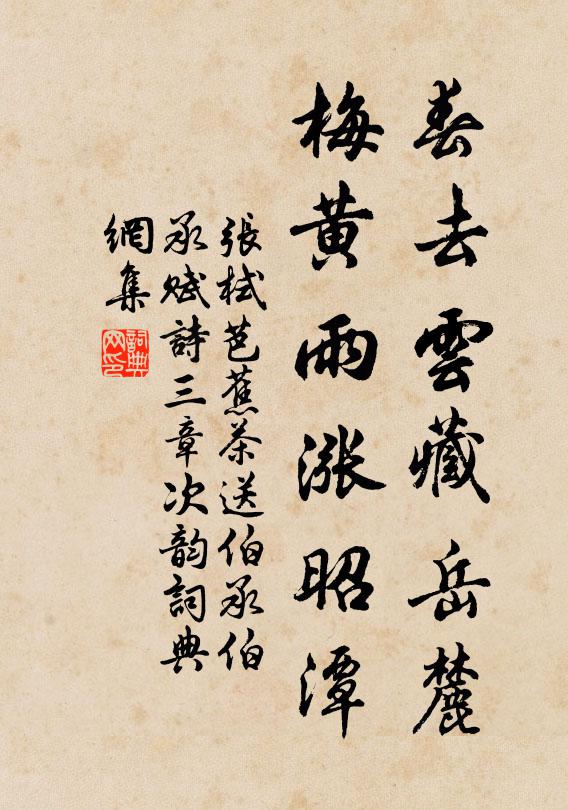 春去雲藏岳麓
梅黃雨漲昭潭
張栻芭蕉茶送伯承伯
承賦詩三章次韵詞典
網集
詞典
网印